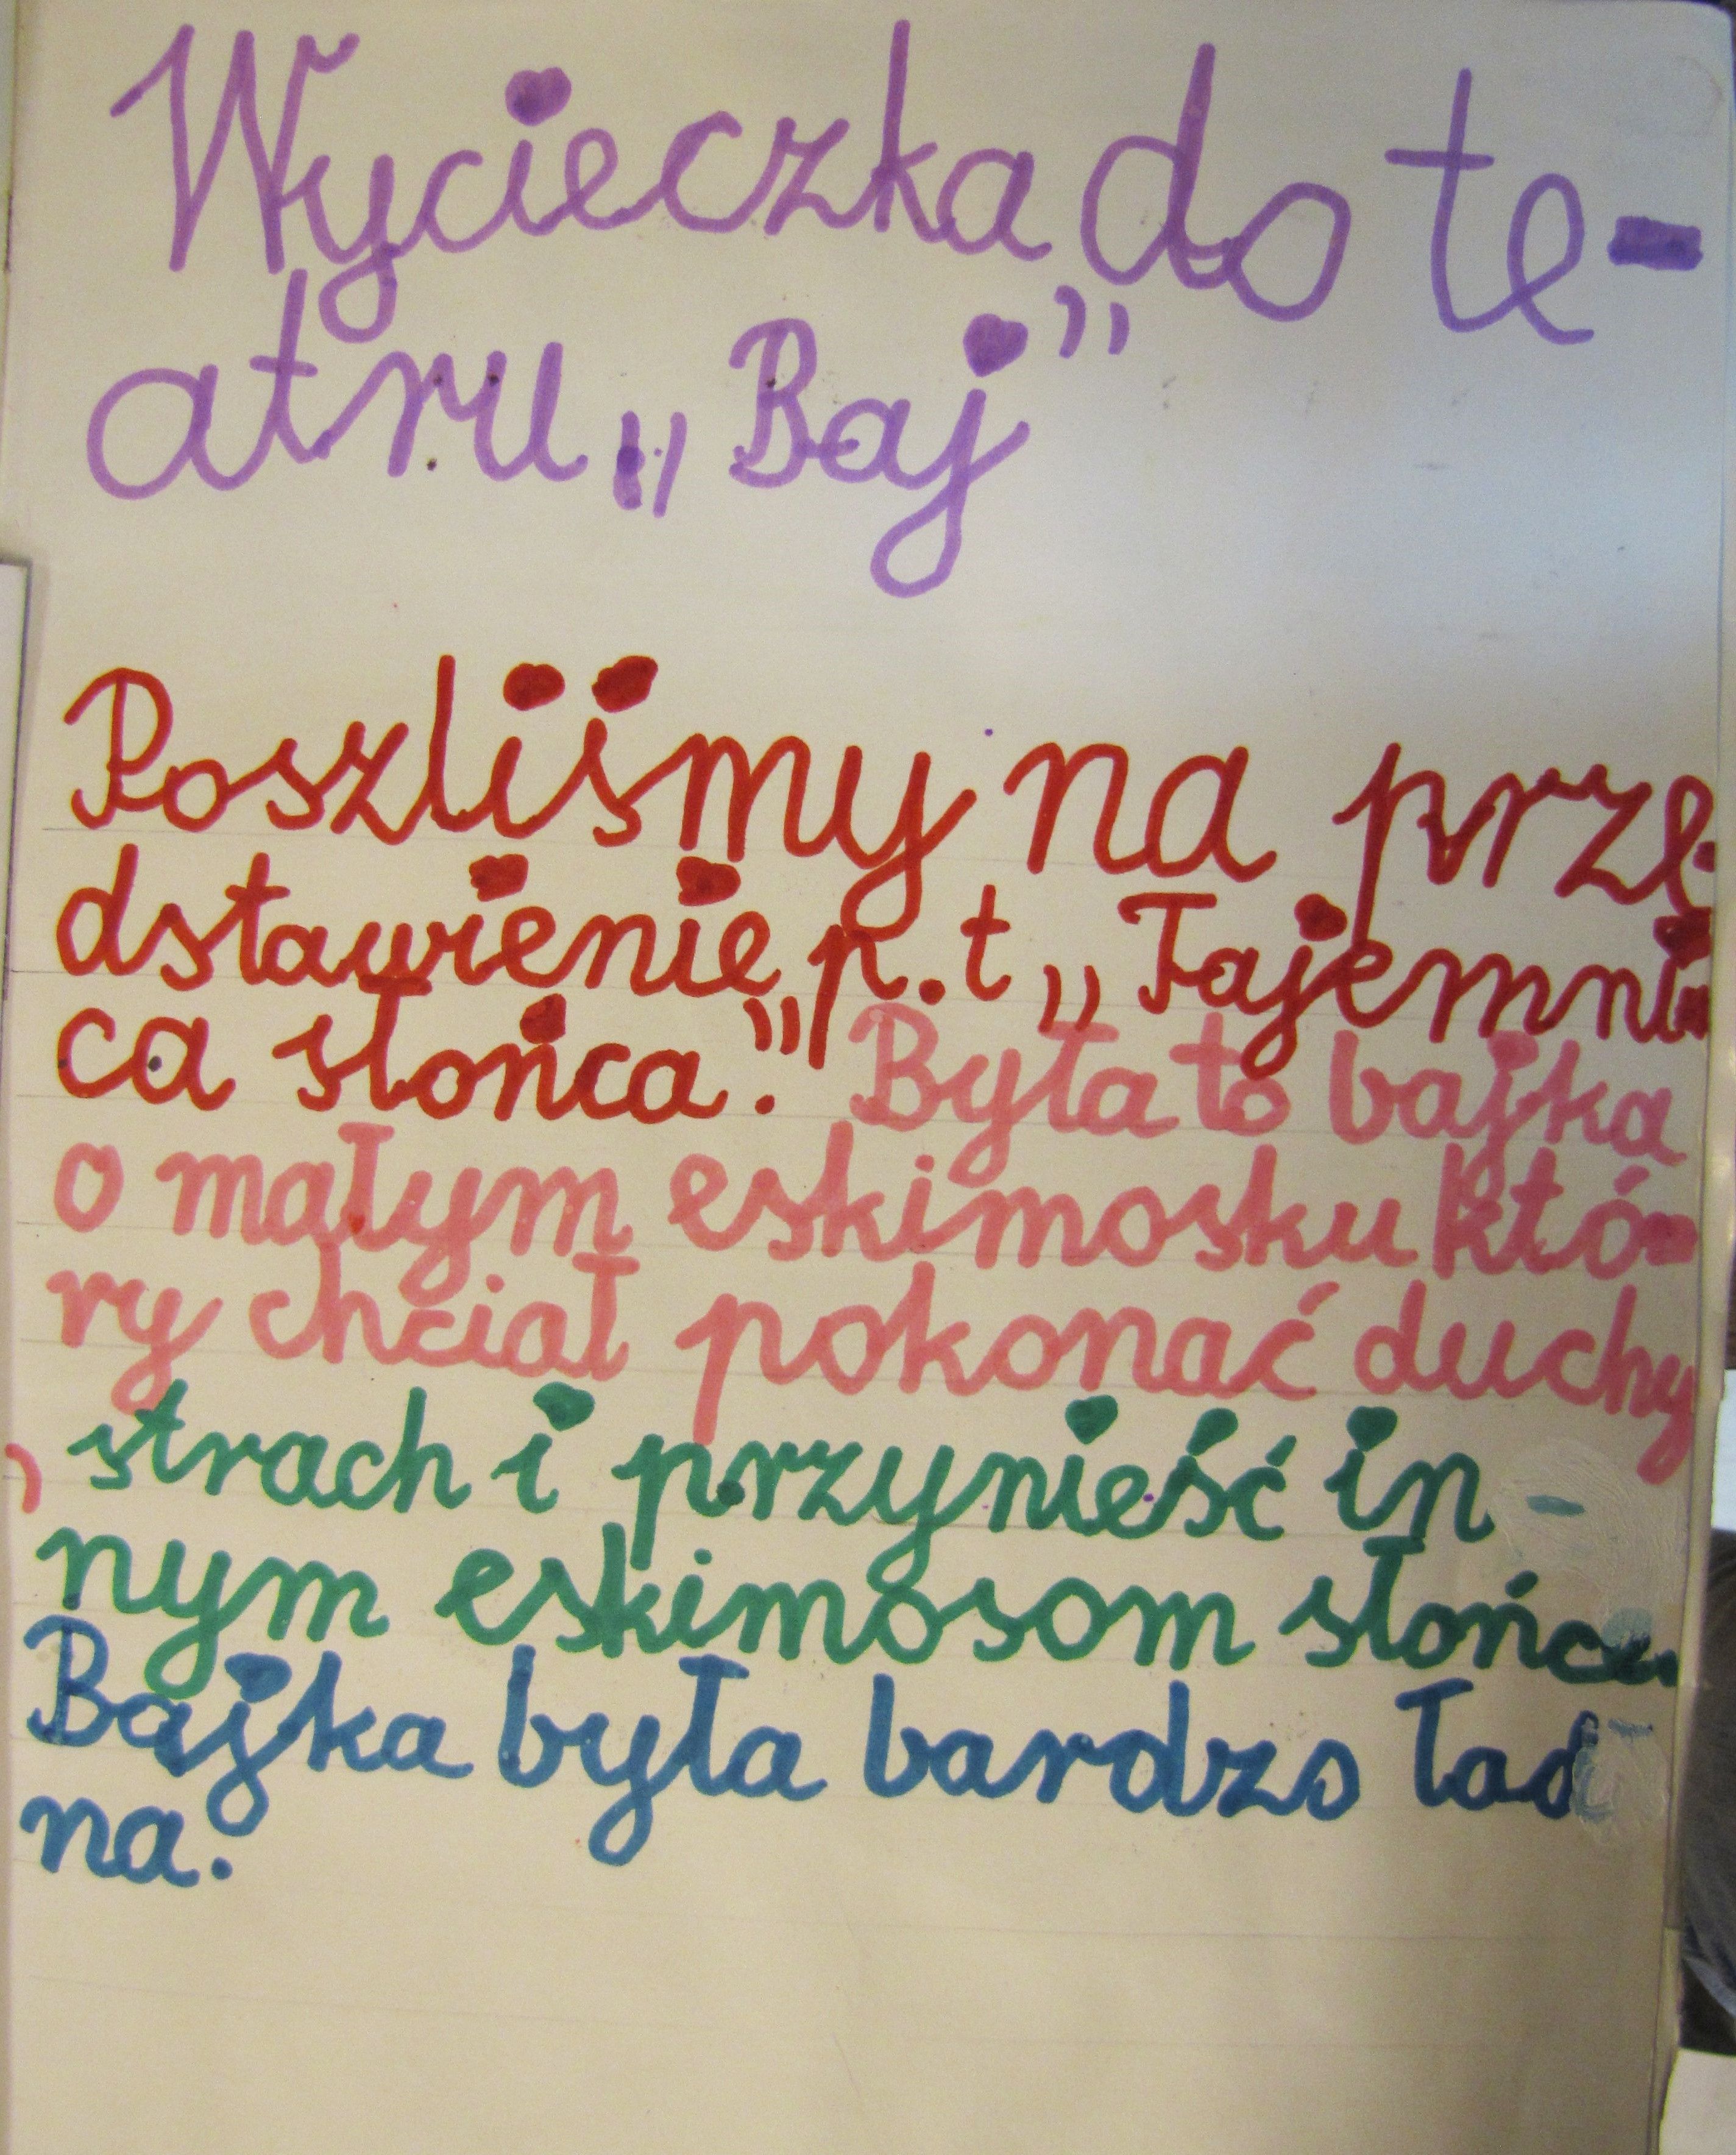 Wycieczka do te-
atru „Baj”
Poszliśmy na prze-
dstawienie p.t „Tajemni-
ca słońca.” Była to bajka
o małym eskimosku któ-
ry chciał pokonać duchy
, strach i przynieść in-
nym eskimosom słońce.
Bajka była bardzo ład
na.